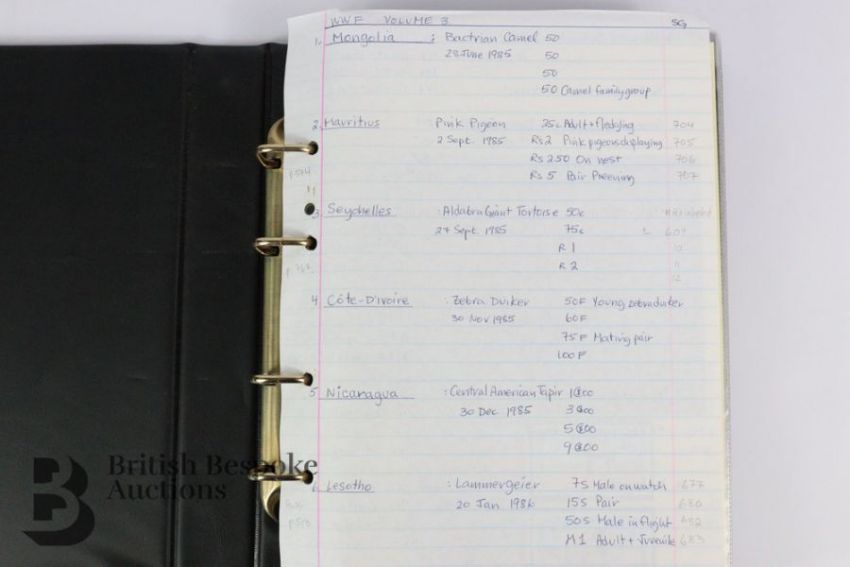 WWF VOLUME 3 SG
1. Mongolia : Bactrian Camel 50
28 June 1985 50
50
50 Camel family group
2 Mauritius Pink Pigeon 25c Adult + Fledgling 704
2 Sept. 1985 Rs 2 Pink pigeons displaying 705
Rs 2.50 On nest 706
Rs 5 Pair Preening 707
3 Seychelles : Aldabra Giant Tortoise 50c
27 Sept. 1985 75c
R 1 10
R 2 11
12
4 Côte-D'ivoire : Zebra Duiker 50F Young zebra duiker
30 Nov 1985 60F
75F Mating pair
100F
5 Nicaragua : Central American Tapir 1₡00
30 Dec 1985 3₡00
5₡00
9₡00
6 Lesotho : Lammergeier 7S Male on watch 677
20 Jan 1986 15S Pair 680
50S Male in flight 682
M1 Adult + Juvenile 683
British Bespoke
Auctions